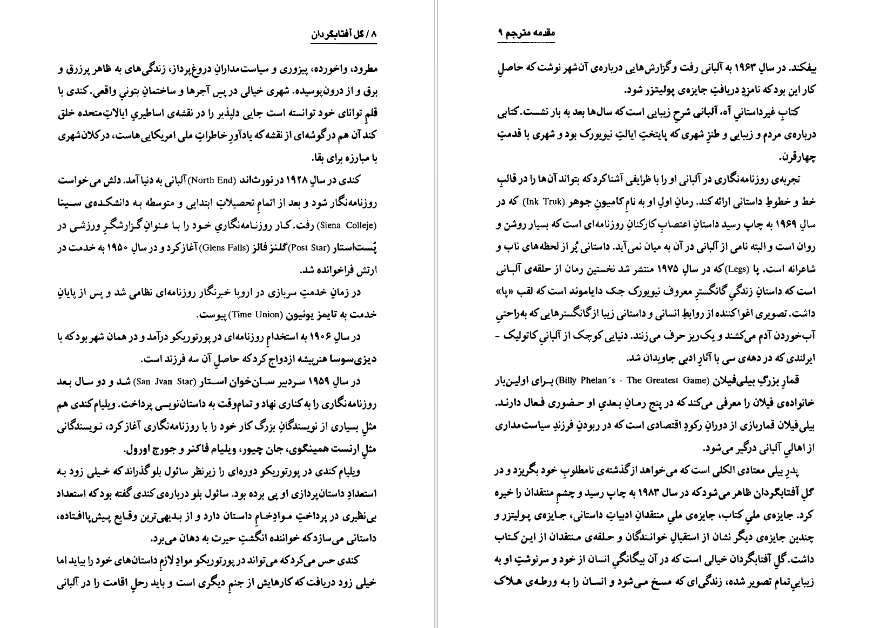 ۸ / گل آفتابگردان
مطرود، واخورده، پیزوری و سیاست‌مدارانِ دروغ‌پرداز، زندگی‌های به ظاهر پرزرق و
برق و از درون‌پوسیده. شهری خیالی در پسِ آجرها و ساختمانِ بتونیِ واقعی. کندی با
قلمِ توانای خود توانسته است جایی دلپذیر را در نقشه‌ی اساطیریِ ایالاتِ‌متحده خلق
کند آن هم در گوشه‌ای از نقشه که یادآورِ خاطراتِ ملی امریکایی‌هاست، در کلان‌شهری
با مبارزه برای بقا.
کندی در سالِ ۱۹۲۸ در نورث‌اند (North End) آلبانی به دنیا آمد. دلش می‌خواست
روزنامه‌نگار شود و بعد از اتمامِ تحصیلاتِ ابتدایی و متوسطه به دانشکده‌ی سینا
(Siena Colleje) رفت. کار روزنامه‌نگاریِ خود را با عنوانِ گزارشگرِ ورزشی در
پُست‌استار (Post Star) گلنز فالز (Glens Falls) آغاز کرد و در سالِ ۱۹۵۰ به خدمت در
ارتش فراخوانده شد.
در زمانِ خدمتِ سربازی در اروپا خبرنگار روزنامه‌ای نظامی شد و پس از پایانِ
خدمت به تایمز یونیون (Time Union) پیوست.
در سالِ ۱۹۰۶ به استخدامِ روزنامه‌ای در پورتوریکو درآمد و در همان شهر بود که با
دیزی‌سوسا هنرپیشه ازدواج کرد که حاصلِ آن سه فرزند است.
در سالِ ۱۹۵۹ سردبیر سان‌خوان استار (San Jvan Star) شد و دو سال بعد
روزنامه‌نگاری را به کناری نهاد و تمام‌وقت به داستان‌نویسی پرداخت. ویلیام‌کندی هم
مثلِ بسیاری از نویسندگانِ بزرگ کار خود را با روزنامه‌نگاری آغاز کرد، نویسندگانی
مثلِ ارنست همینگوی، جان چیور، ویلیام فاکنر و جورج اورول.
ویلیام کندی در پورتوریکو دوره‌ای را زیرنظر سائول بلو گذراند که خیلی زود به
استعدادِ داستان‌پردازی او پی برده بود. سائول بلو درباره‌ی کندی گفته بود که استعداد
بی‌نظیری در پرداختِ موادِخامِ داستان دارد و از بدیهی‌ترین وقایع پیش‌پاافتاده،
داستانی می‌سازد که خواننده انگشتِ حیرت به دهان می‌برد.
کندی حس می‌کرد که می‌تواند در پورتوریکو موادِ لازمِ داستان‌های خود را بیابد اما
خیلی زود دریافت که کارهایش از جنمِ دیگری است و باید رحلِ اقامت را در آلبانی
مقدمه مترجم ۹
بیفکند. در سالِ ۱۹۶۳ به آلبانی رفت و گزارش‌هایی درباره‌ی آن شهر نوشت که حاصلِ
کار این بود که نامزدِ دریافتِ جایزه‌ی پولیتزر شود.
کتابِ غیرداستانیِ آه، آلبانی شرحِ زیبایی است که سال‌ها بعد به بار نشست. کتابی
درباره‌ی مردم و زیبایی و طنزِ شهری که پایتختِ ایالتِ نیویورک بود و شهری با قدمتِ
چهارقرن.
تجربه‌ی روزنامه‌نگاری در آلبانی او را با ظرایفی آشنا کرد که بتواند آن‌ها را در قالبِ
خط و خطوطِ داستانی ارائه کند. رمانِ اولِ او به نامِ کامیونِ جوهر (Ink Truk) که در
سالِ ۱۹۶۹ به چاپ رسید داستانِ اعتصابِ کارکنانِ روزنامه‌ای است که بسیار روشن و
روان است و البته نامی از آلبانی در آن به میان نمی‌آید. داستانی پُر از لحظه‌های ناب و
شاعرانه است. پا (Legs) که در سالِ ۱۹۷۵ منتشر شد نخستین رمان از حلقه‌ی آلبانی
است که داستانِ زندگیِ گانگسترِ معروف نیویورک جک دایاموند است که لقب «پا»
داشت. تصویری اغواکننده از روابطِ انسانی و داستانی زیبا از گانگسترهایی که به‌راحتیِ
آب‌خوردن آدم می‌کشند و یک‌ریز حرف می‌زنند. دنیایی کوچک از آلبانیِ کاتولیک -
ایرلندی که در دهه‌ی سی با آثارِ ادبی جاویدان شد.
قمارِ بزرگِ بیلی‌فیلان (Billy Phelan´s - The Greatest Game) برای اولین‌بار
خانواده‌ی فیلان را معرفی می‌کند که در پنج رمانِ بعدیِ او حضوری فعال دارند.
بیلی‌فیلان قماربازی از دورانِ رکودِ اقتصادی است که در ربودنِ فرزندِ سیاست‌مداری
از اهالیِ آلبانی درگیر می‌شود.
پدرِ بیلی معتادی الکلی است که می‌خواهد از گذشته‌ی نامطلوبِ خود بگریزد و در
گلِ آفتابگردان ظاهر می‌شود که در سال ۱۹۸۳ به چاپ رسید و چشمِ منتقدان را خیره
کرد. جایزه‌ی ملیِ کتاب، جایزه‌ی ملیِ منتقدانِ ادبیاتِ داستانی، جایزه‌ی پولیتزر و
چندین جایزه‌ی دیگر نشان از استقبالِ خوانندگان و حلقه‌ی منتقدان از این کتاب
داشت. گلِ آفتابگردان خیالی است که در آن بیگانگیِ انسان از خود و سرنوشتِ او به
زیباییِ‌تمام تصویر شده، زندگی‌ای که مسخ می‌شود و انسان را به ورطه‌ی هلاک